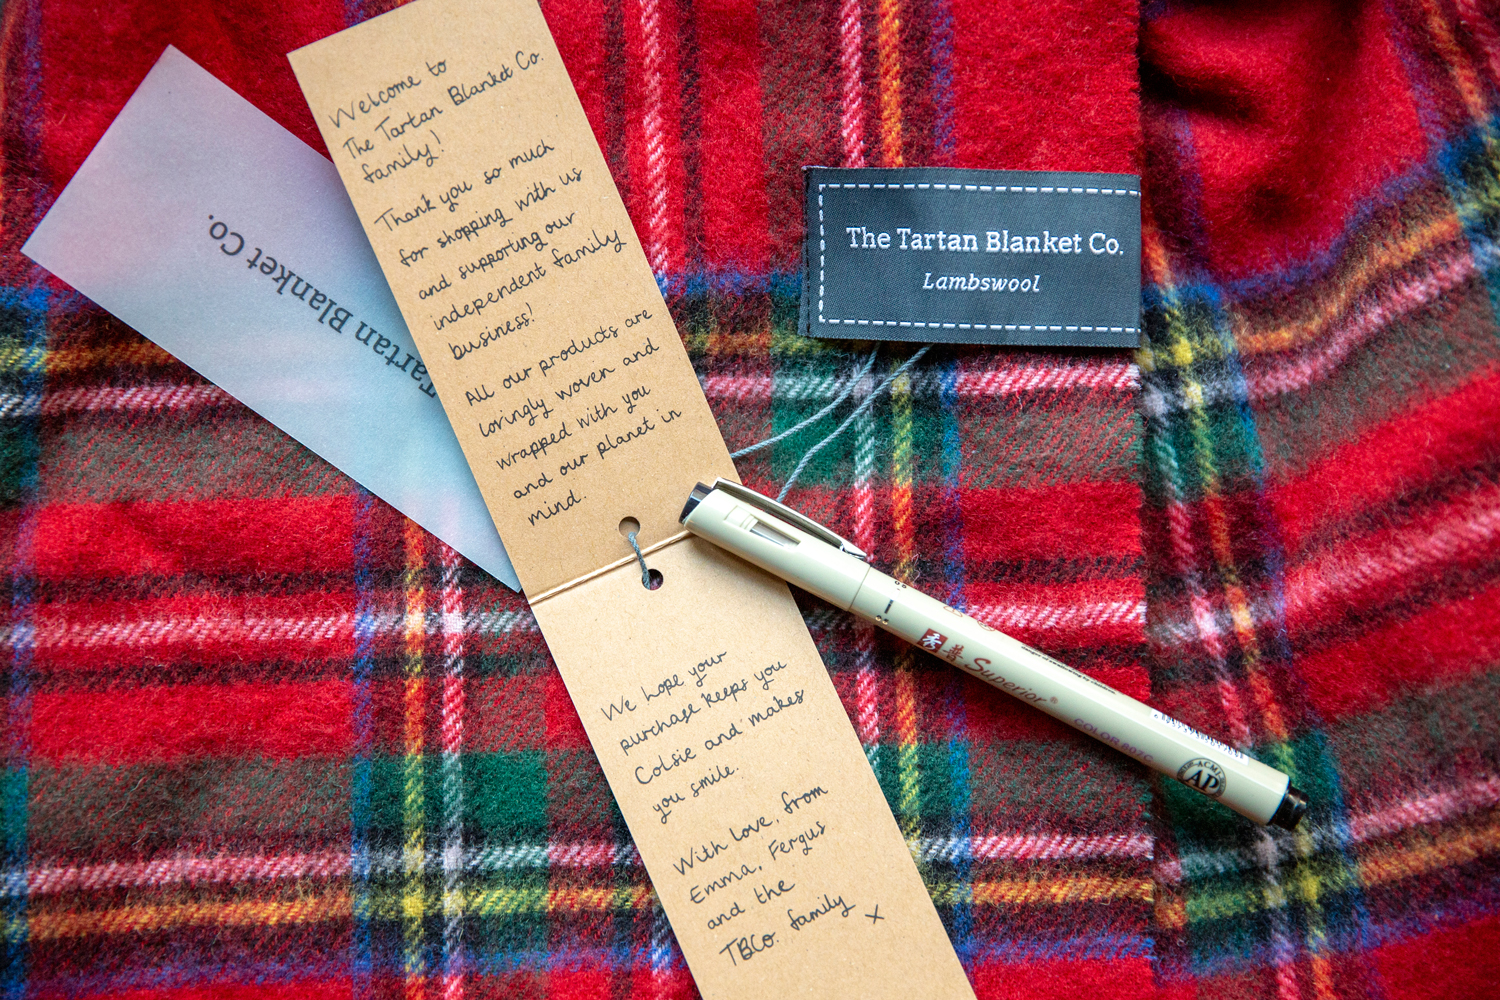 Welcome to
The Tartan Blanket Co.
family!
Thank you so much
for shopping with us
and supporting our
independent family
business!
All our products are
lovingly woven and
wrapped with you
and our planet in
mind.
We hope your
purchase keeps you
Colsie and makes
you smile.
With love, from
Emma, Fergus
and the
TBCo. family x
Tartan Blanket Co.
The Tartan Blanket Co.
Lambswool
1
秀普 Superior®
COLOR 807C
AP